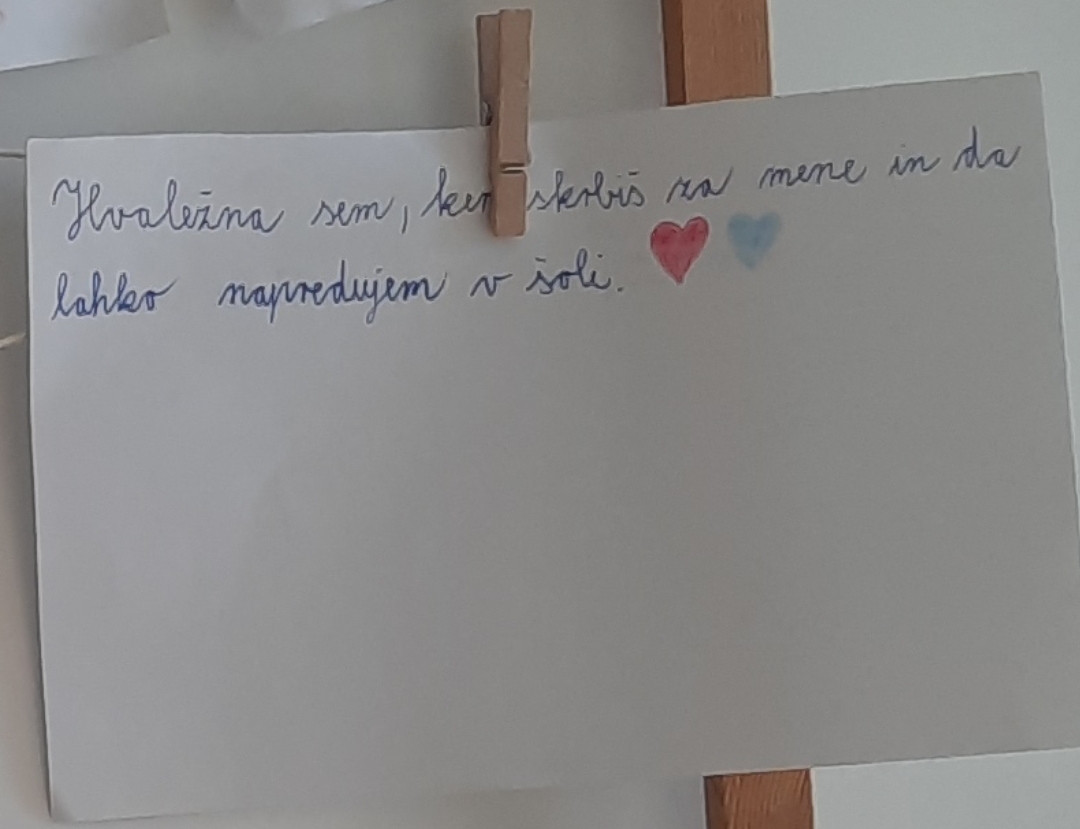 Hvaležna sem, ker skrbiš za mene in da
lahko napredujem v šoli.